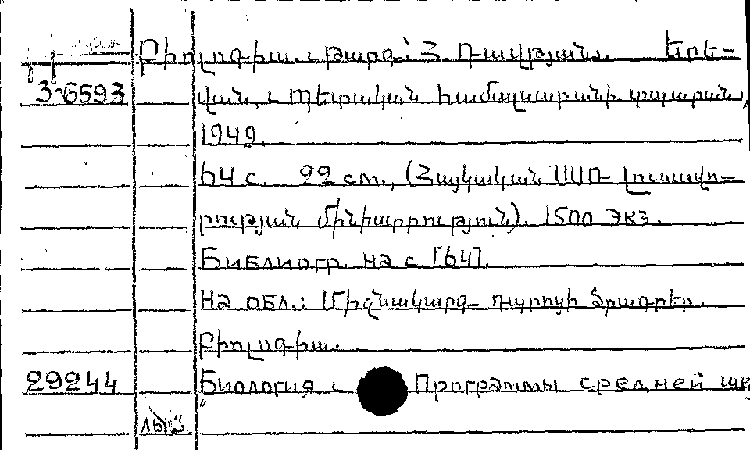 Բիոլոգիա. Թարգ՝ Հ. Դավթյան. Երե-
36593 վան, Պետական համալսարանի տպարան,
1949.
64 с. 22 см., (Հայկական ՍՍՌ Լուսավո-
րության մինիստրություն). 1500 экз.
Библиогр. на с [64].
На обл.: Միջնակարգ դպրոցի ծրագրեր.
Բիոլոգիա.
29244 Биология. Программы средней шк